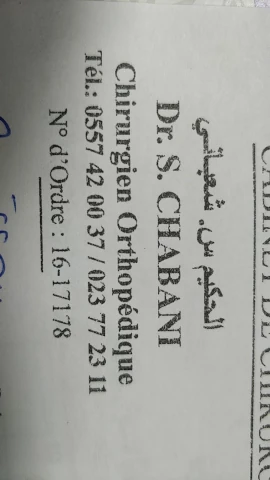 CABINET DE CHIRURG
الحكيم س. شعباني
Dr. S. CHABANI
Chirurgien Orthopédique
Tél.: 0557 42 00 37 / 023 77 23 11
N° d'Ordre : 16-17178